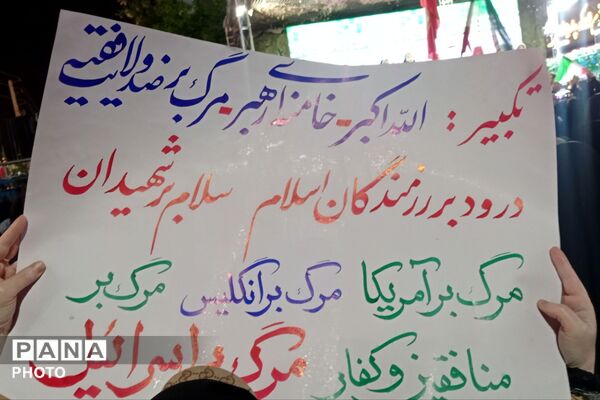 تکبیر: الله اکبر - خامنه‌ای رهبر - مرگ بر ضد ولایت فقیه
درود بر رزمندگان اسلام سلام بر شهیدان
مرگ بر آمریکا مرگ بر انگلیس مرگ بر
منافقین و کفار مرگ بر اسرائیل
PANA
PHOTO